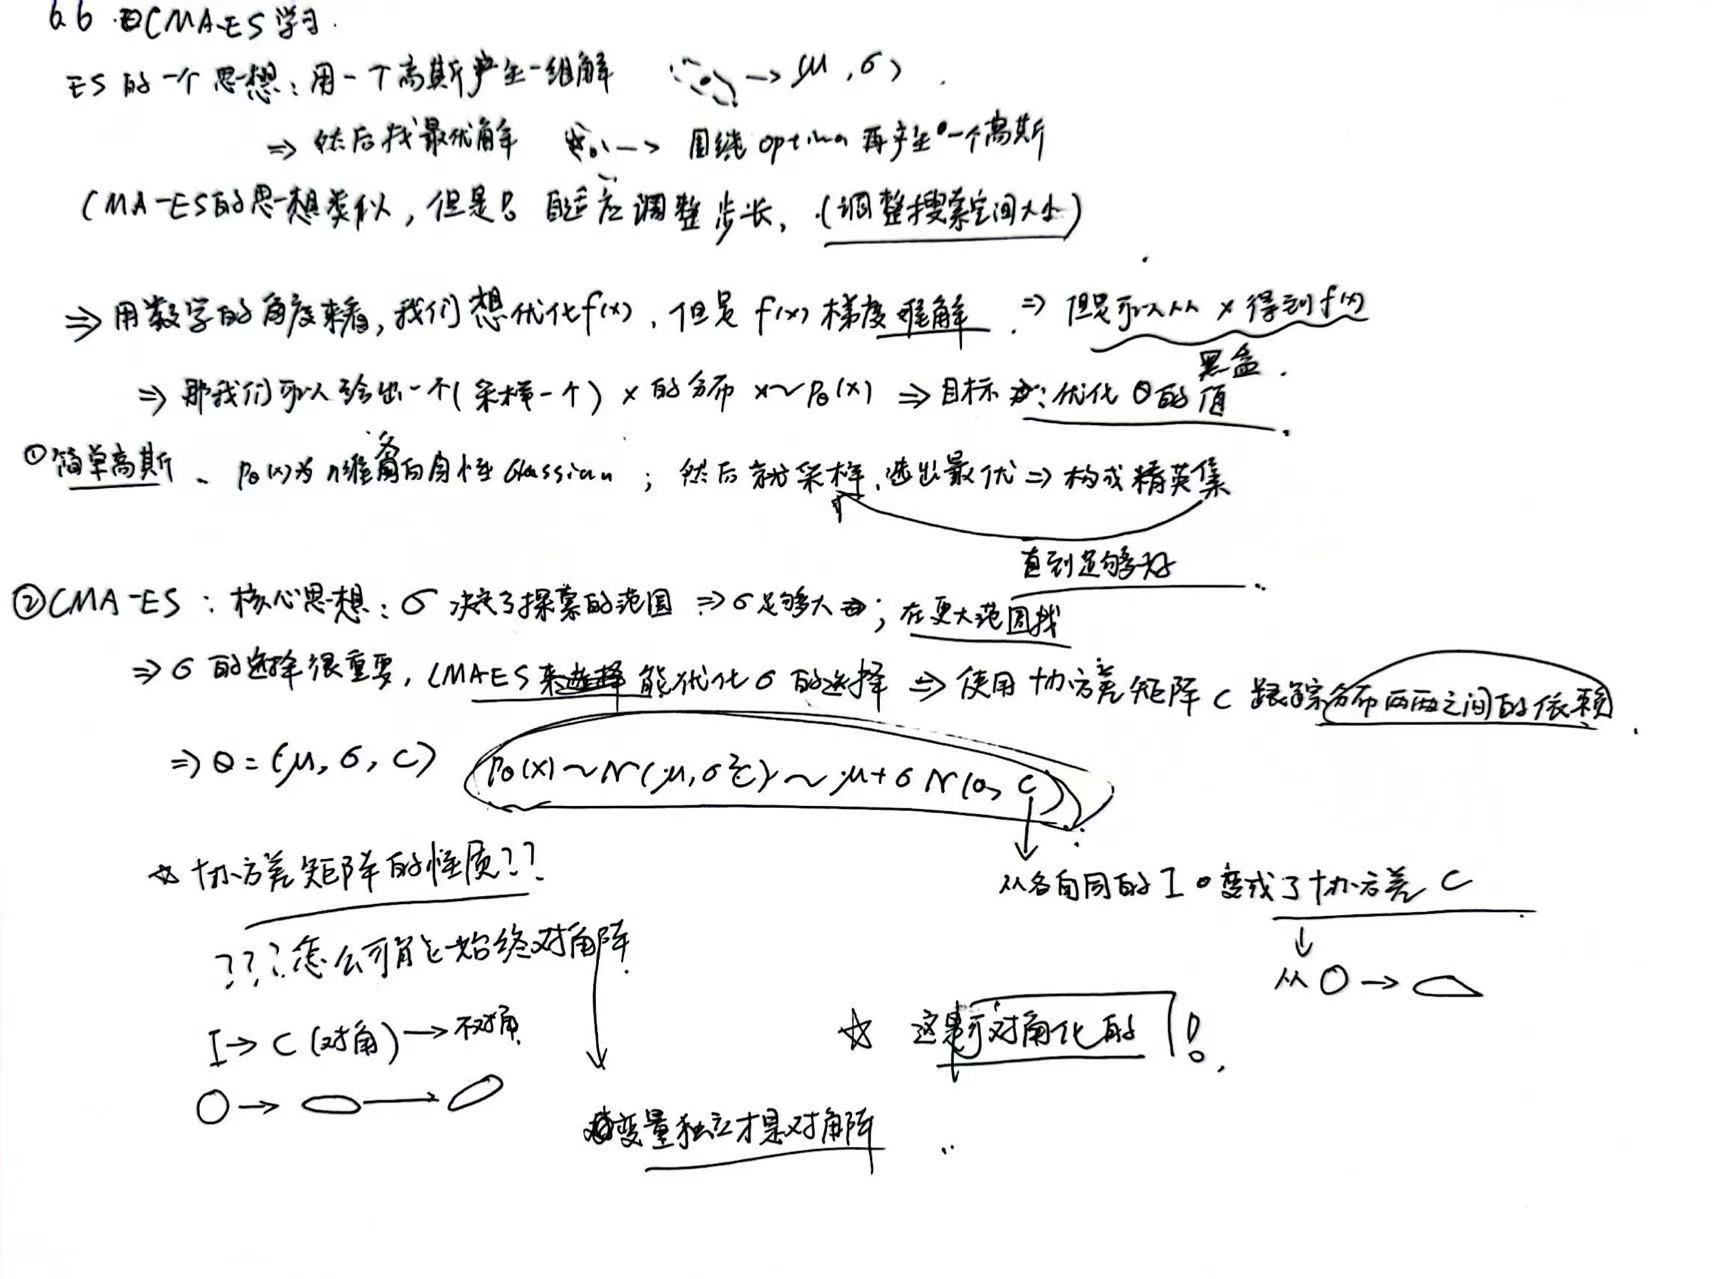 6.6 CMA-ES学习.
ES的一个思想：用一个高斯产生一组解 → (μ, σ)
⇒ 然后找最优解 → 围绕optima再产生一个高斯
CMA-ES的思想类似，但是 自适应调整步长，(调整搜索空间大小)
⇒ 用数学的角度来看，我们想优化f(x)，但是f(x)梯度难解. ⇒ 但是可以从x得到f(x)
黑盒.
⇒ 那我们可以给出一个(采样一个) x的分布 x~Pθ(x) ⇒ 目标：优化θ的值
①简单高斯、Pθ(x)为n维各向同性Gaussian；然后就采样,选出最优 ⇒ 构成精英集
直到足够好
②CMA-ES：核心思想：σ决定了探索的范围 ⇒ σ足够大；在更大范围找
⇒ σ的选择很重要，CMA-ES 能优化σ的选择 ⇒ 使用协方差矩阵C 跟踪分布两两之间的依赖.
⇒ θ = (μ, σ, C) Pθ(x) ~ N(μ, σ²C) ~ μ + σ N(0, C)
☆ 协方差矩阵的性质??
从各向同的I变成了协方差C
???怎么可能始终对角阵
从 ○ →
I → C (对角) → 不对角
☆ 这是可对角化的!
○ →
变量独立才是对角阵